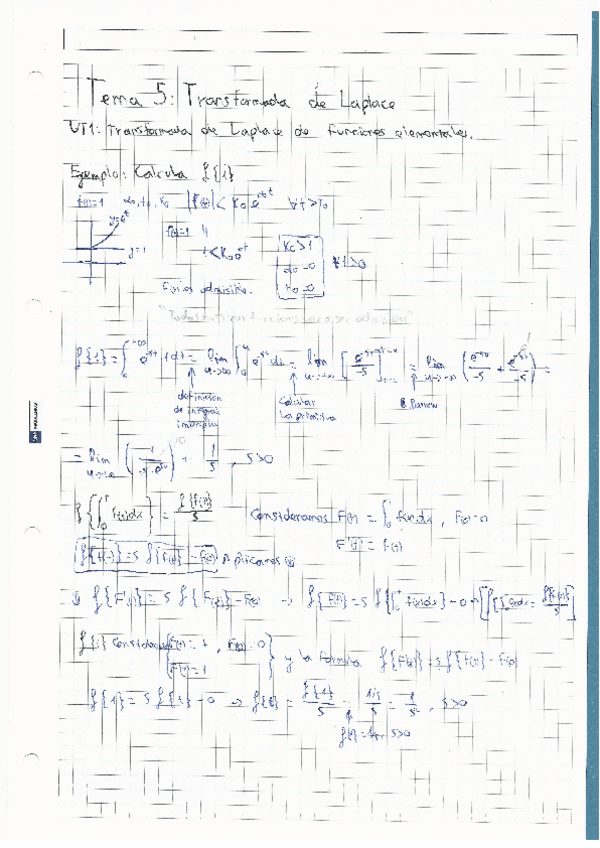 Tema 5: Transformada de Laplace
VT1: Transformada de Laplace de funciones elementales.
Ejemplo: Calcula ℒ{1}
f(t)=1 α₀, t₀, K₀ |f(t)| < K₀ e^{α₀t} ∀t>t₀
y=e^t
f(t)=1
y=1 1<K₀e^{α₀t} K₀>1 ∀t≥0
α₀=0
t₀=0
ℒ{1} = ∫₀^{+∞} e^{-st} · 1 dt = lim_{u→+∞} ∫₀^u e^{-st} dt = lim_{u→+∞} [e^{-st}/-s]_{t=0}^{t=u} = lim_{u→+∞} (e^{-su}/-s + e^0/-s) =
definición
de integral
impropia
Calcular
la primitiva
Barrow
= lim_{u→+∞} (1/(-s·e^{su})) + 1/s , s>0
ℒ{∫₀^t f(x)dx} = ℒ{f(t)}/s Consideramos F(t) = ∫₀^t f(x)dx, F(0)=0
F'(t) = f(t)
ℒ{f'(t)} = s ℒ{f(t)} - f(0) Aplicamos
ℒ{F'(t)} = s ℒ{F(t)} - F(0) → ℒ{f(t)} = s ℒ{∫₀^t f(x)dx} - 0 → ℒ{∫₀^t f(x)dx} = ℒ{f(t)}/s
ℒ{t} Consideramos F(t) = t, F(0) = 0
F'(t) = 1
y la fórmula ℒ{F'(t)} = s ℒ{F(t)} - F(0)
ℒ{1} = s ℒ{t} - 0 → ℒ{t} = ℒ{1}/s = (1/s)/s = 1/s², s>0
ℒ{1} = 1/s, s>0